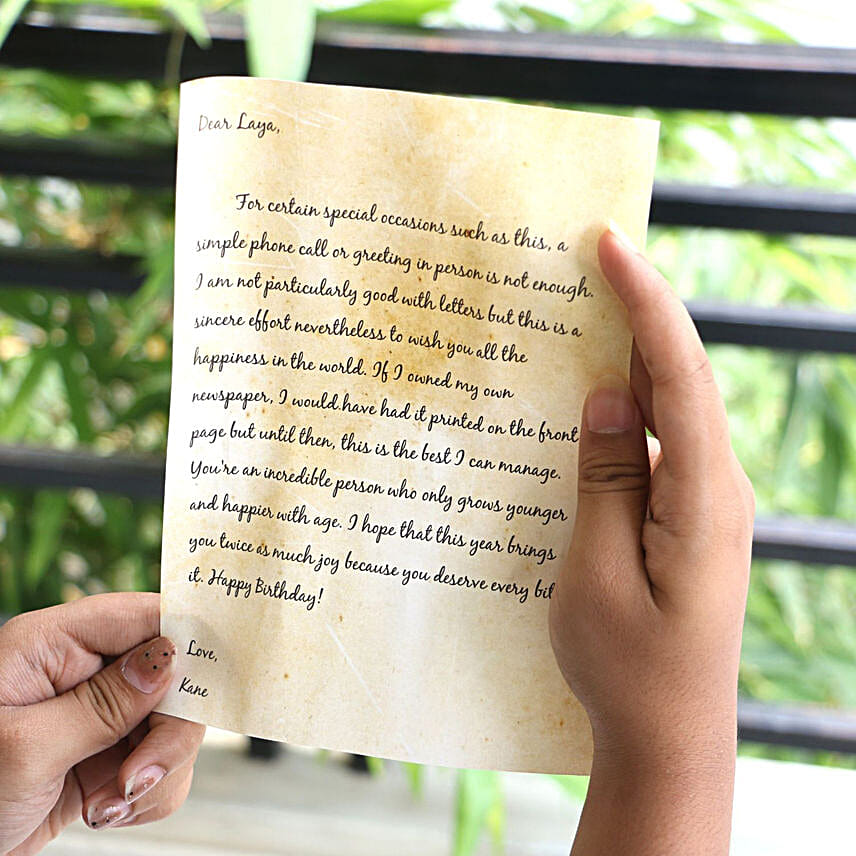 Dear Laya,
For certain special occasions such as this, a
simple phone call or greeting in person is not enough.
I am not particularly good with letters but this is a
sincere effort nevertheless to wish you all the
happiness in the world. If I owned my own
newspaper, I would have had it printed on the front
page but until then, this is the best I can manage.
You're an incredible person who only grows younger
and happier with age. I hope that this year brings
you twice as much joy because you deserve every bit
it. Happy Birthday!
Love,
Kane